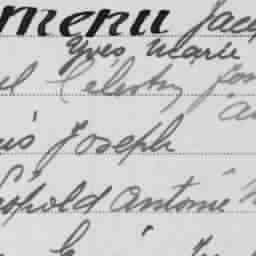 menu Jac
Yves Marie
el Célestin
is Joseph
éopold Antoine